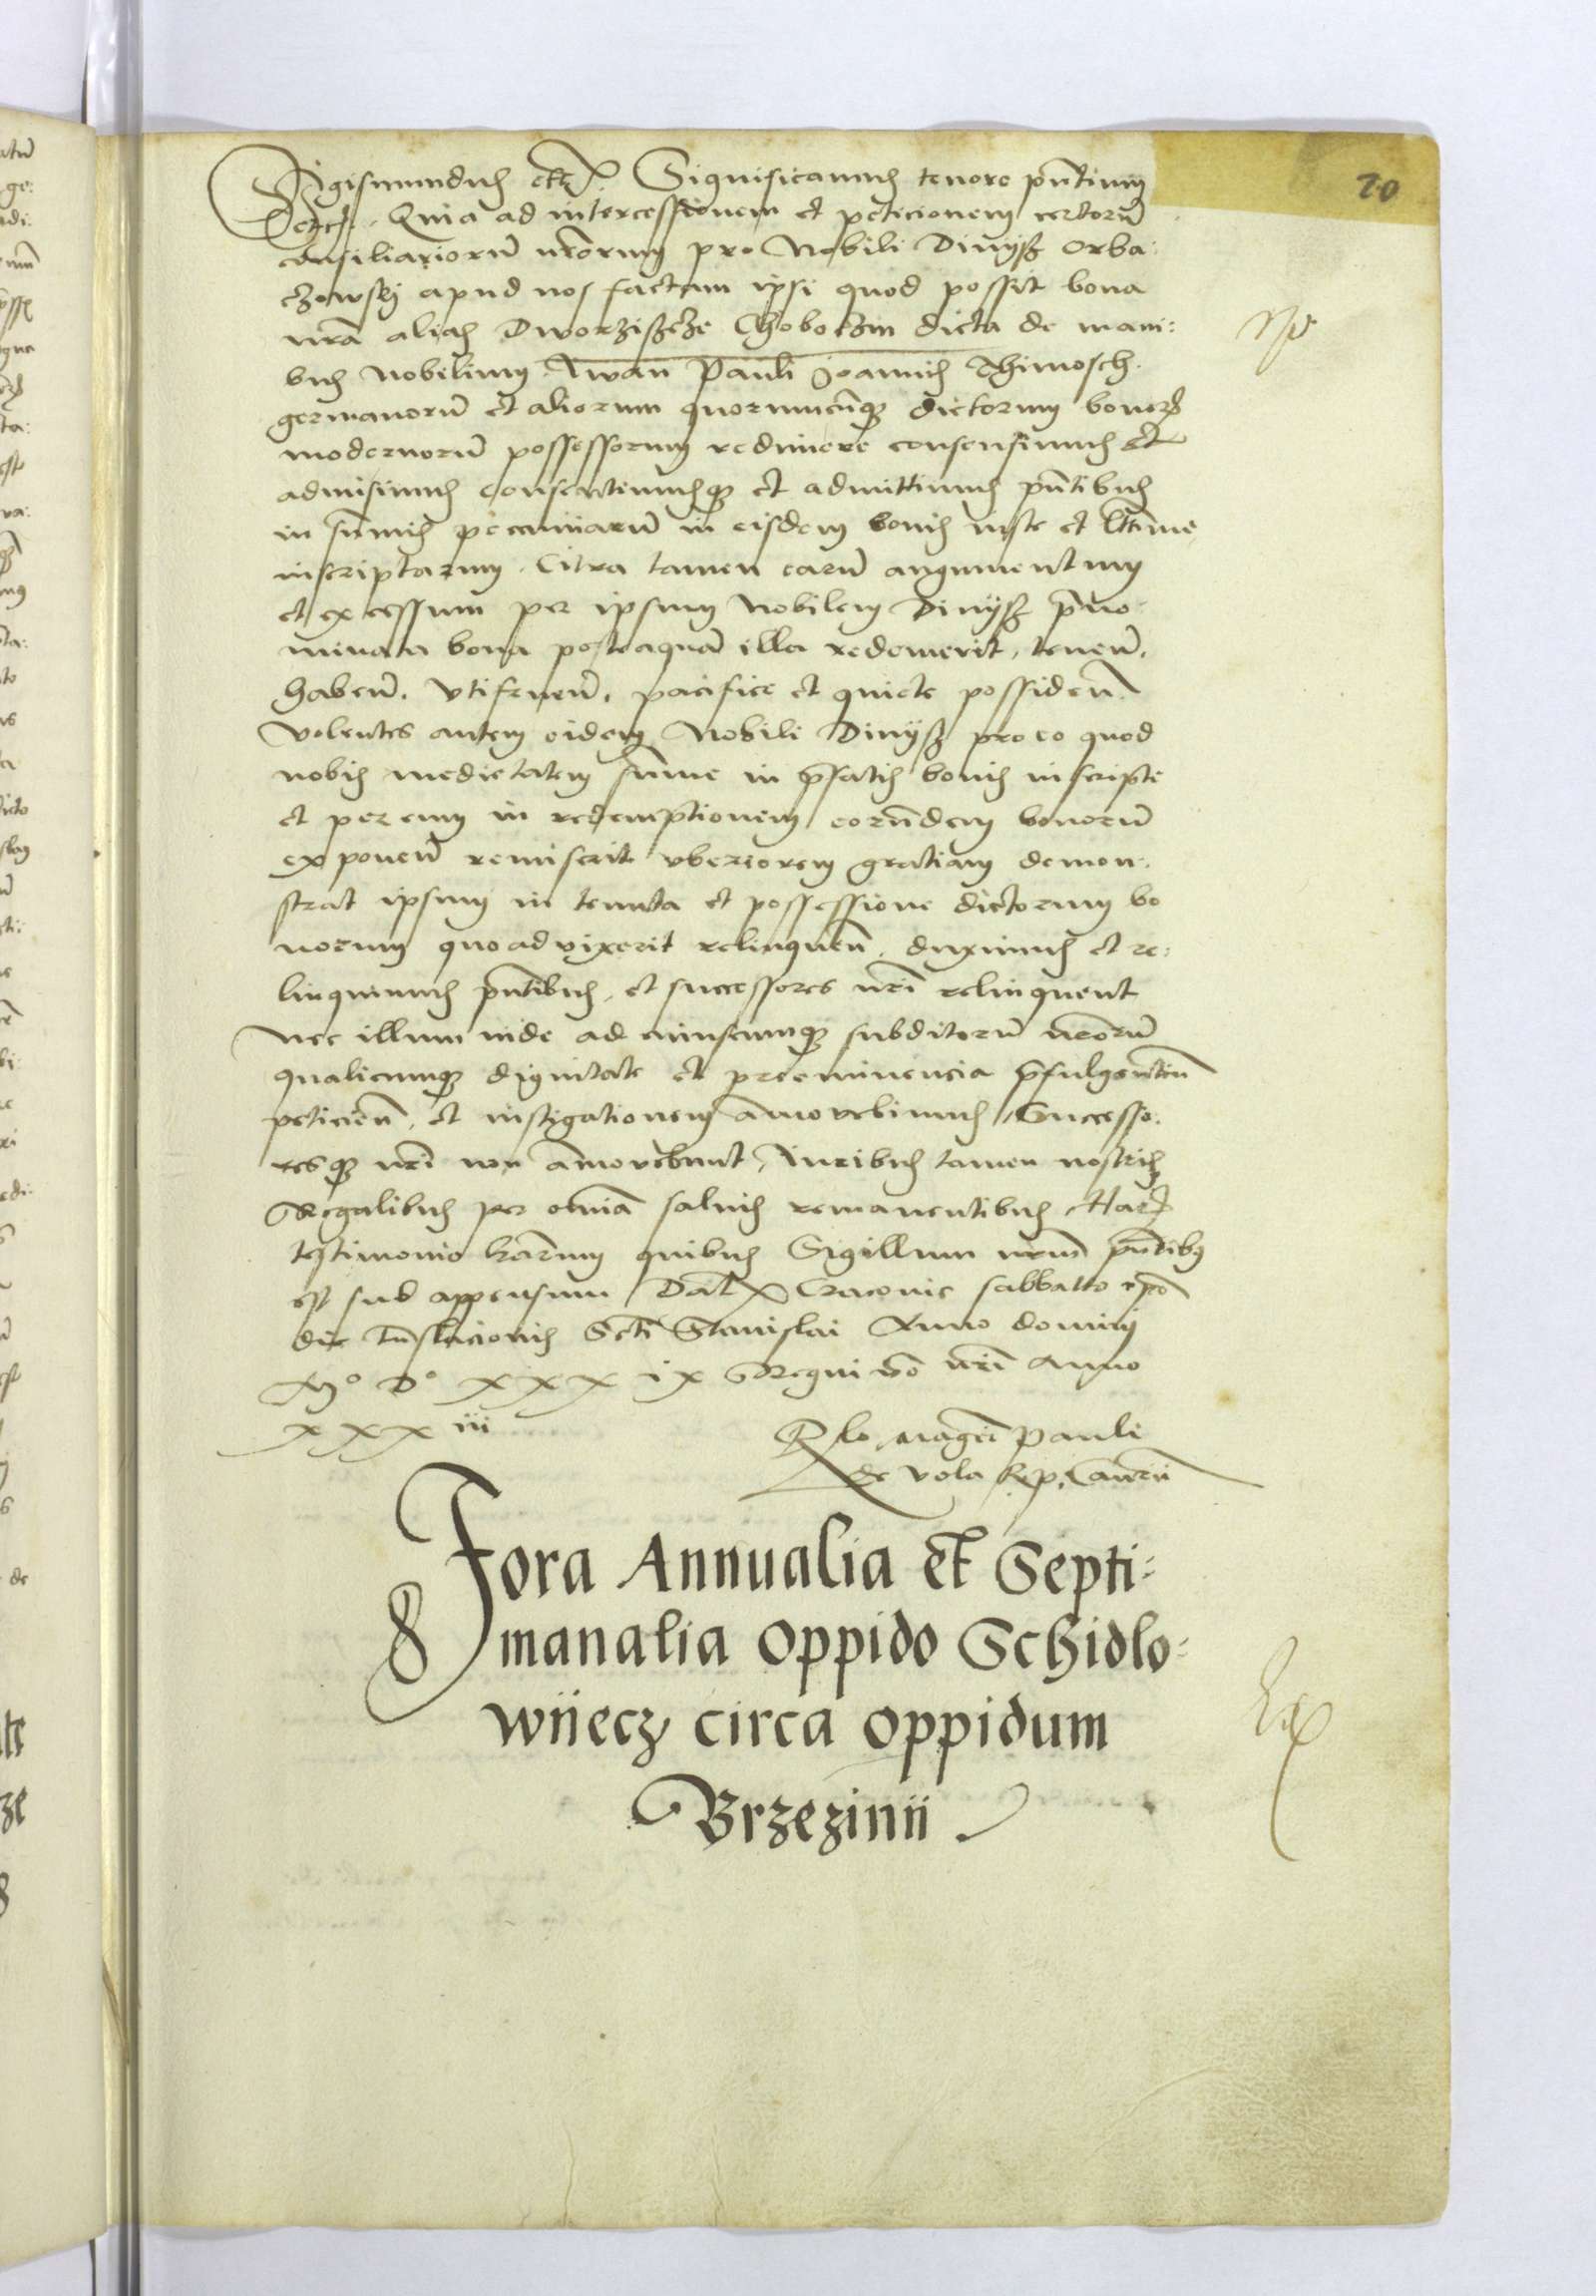 20
Sigismundus etc. Significamus tenore pñtium
etc. Quia ad intercessionem et peticionem certorũ
consiliariorũ nrõrum pro Nobili Dinijß Orba:
czowskj apud nos factam ipsi quod possit bona
nrã alias Dworzißcze Choboczin dicta de mani:
bus nobilium Iwan Pauli Joannis Thimosch
germanorũ et aliorum quorumcũqȝ dictorum bonorũ
modernorũ possessorum redimere consensimus et
admisimus consentimusqȝ et admittimus pñtibus
in sũmis pecuniarũ in eisdem bonis iuste et lttime
inscriptarum. Citra tamen earũ augumentum
et excessum per ipsum Nobilem Dinijß p̃no:
minata bona posteaquã illa redemerit, tenen̄.
haben̄. vtifruen̄. pacifice et quiete possiden̄.
Volentes autem eidem Nobili Dinijß pro eo quod
nobis medietatem sũme in p̃fatis bonis inscripte
et per eum in redemptionem eorũdem bonorũ
exponen̄ remiserit vberiorem gratiam demon:
strat ipsum in tenuta et possessione dictorum bo
norum quoad vixerit relinquen̄. duximus et re:
linquimus pñtibus, et successores nrĩ relinquent
nec illum inde ad cuiuscumqȝ subditorũ nrõrũ
qualicumqȝ dignitate et preeminencia p̃fulgentiũ
peticion̄. et instigationem amovebimus Successo:
resqȝ nrĩ non amovebunt, Iuribus tamen nostris
Regalibus per omniã salvis remanentibus Harũ
testimonio lrãrum quibus Sigillum nrũm pñtibus
est subappensum Dat Cracovie sabbatto
die trñslacionis Scti Stanislai Anno domini
Mº Dº xxx ix Regni vẽo nrĩ Anno
xxx iii
Rlo Magci Pauli
de Vola R. p. Cancrii
Fora Annualia et Septi:
manalia oppido Schidlo:
wiiecz circa oppidum
Brzezinii